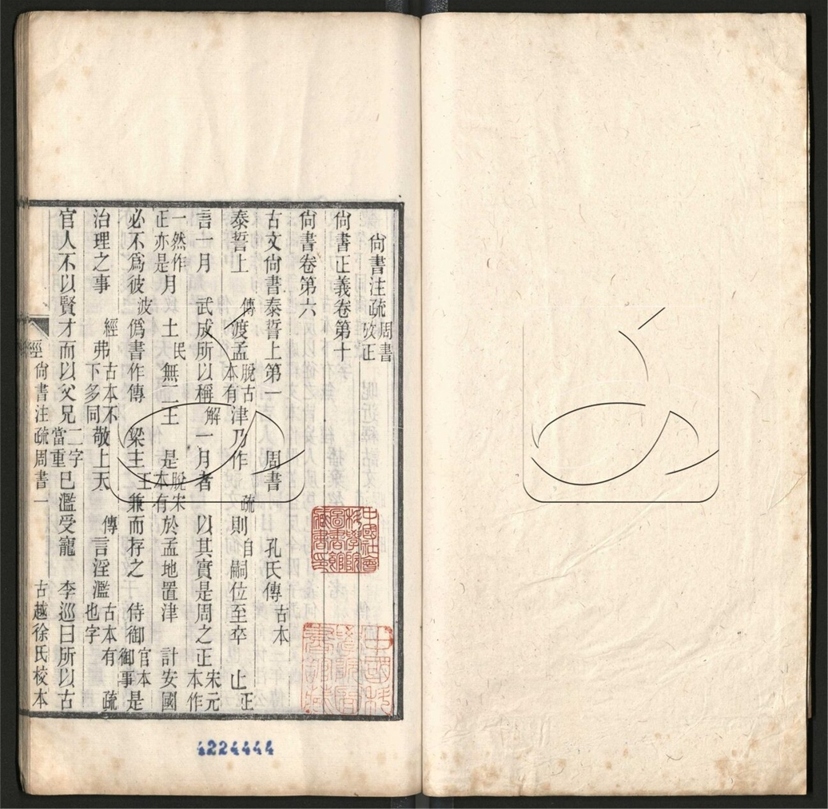 尚書注疏周書攷正
尚書正義卷第十
尚書卷第六
古文尚書泰誓上第一 周書 孔氏傳古本
泰誓上 傳渡孟脫古本有津乃作 疏則自嗣位至卒 止正
言一月 武成所以稱解一月者 以其實是周之正宋元本作
一然作正亦是月 土民無二王 是脫宋本有於孟地置津 計安國
必不爲彼波僞書作傳 梁主王兼而存之 侍御官本御事是
治理之事 經弗古本不下多同敬上天 傳言淫濫古本有也字 疏
官人不以賢才而以父兄二字當重已濫受寵 李巡曰所以古
經尚書注疏周書一 古越徐氏校本
4224444